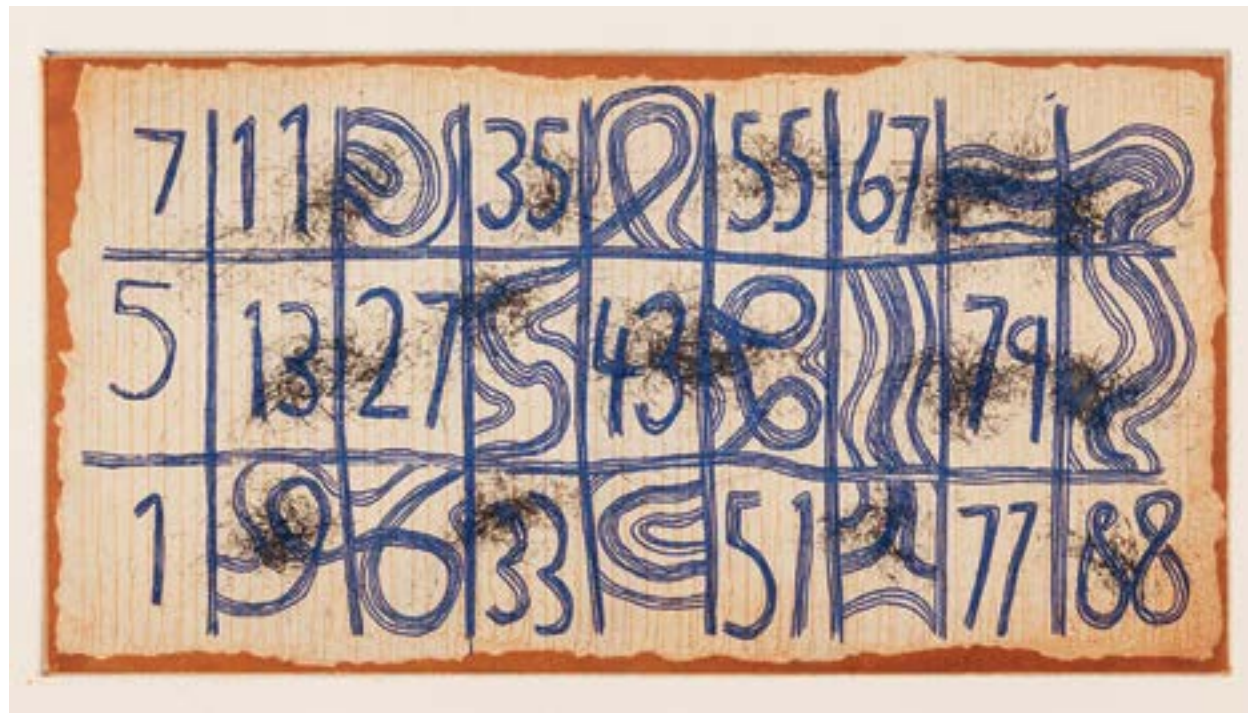 7 11 35 55 67
5 13 27 43 79
1 33 51 77 88